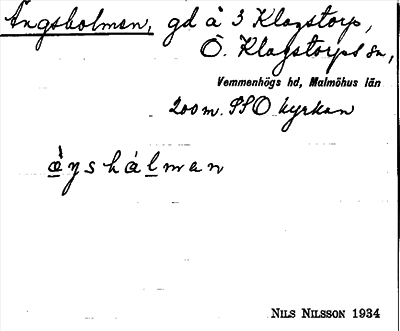 Ängsholman, gd å 3 Klagstorp,
Ö. Klagstorps sn,
Vemmenhögs hd, Malmöhus län
200 m. SSO kyrkan
àŋshálman
NILS NILSSON 1934